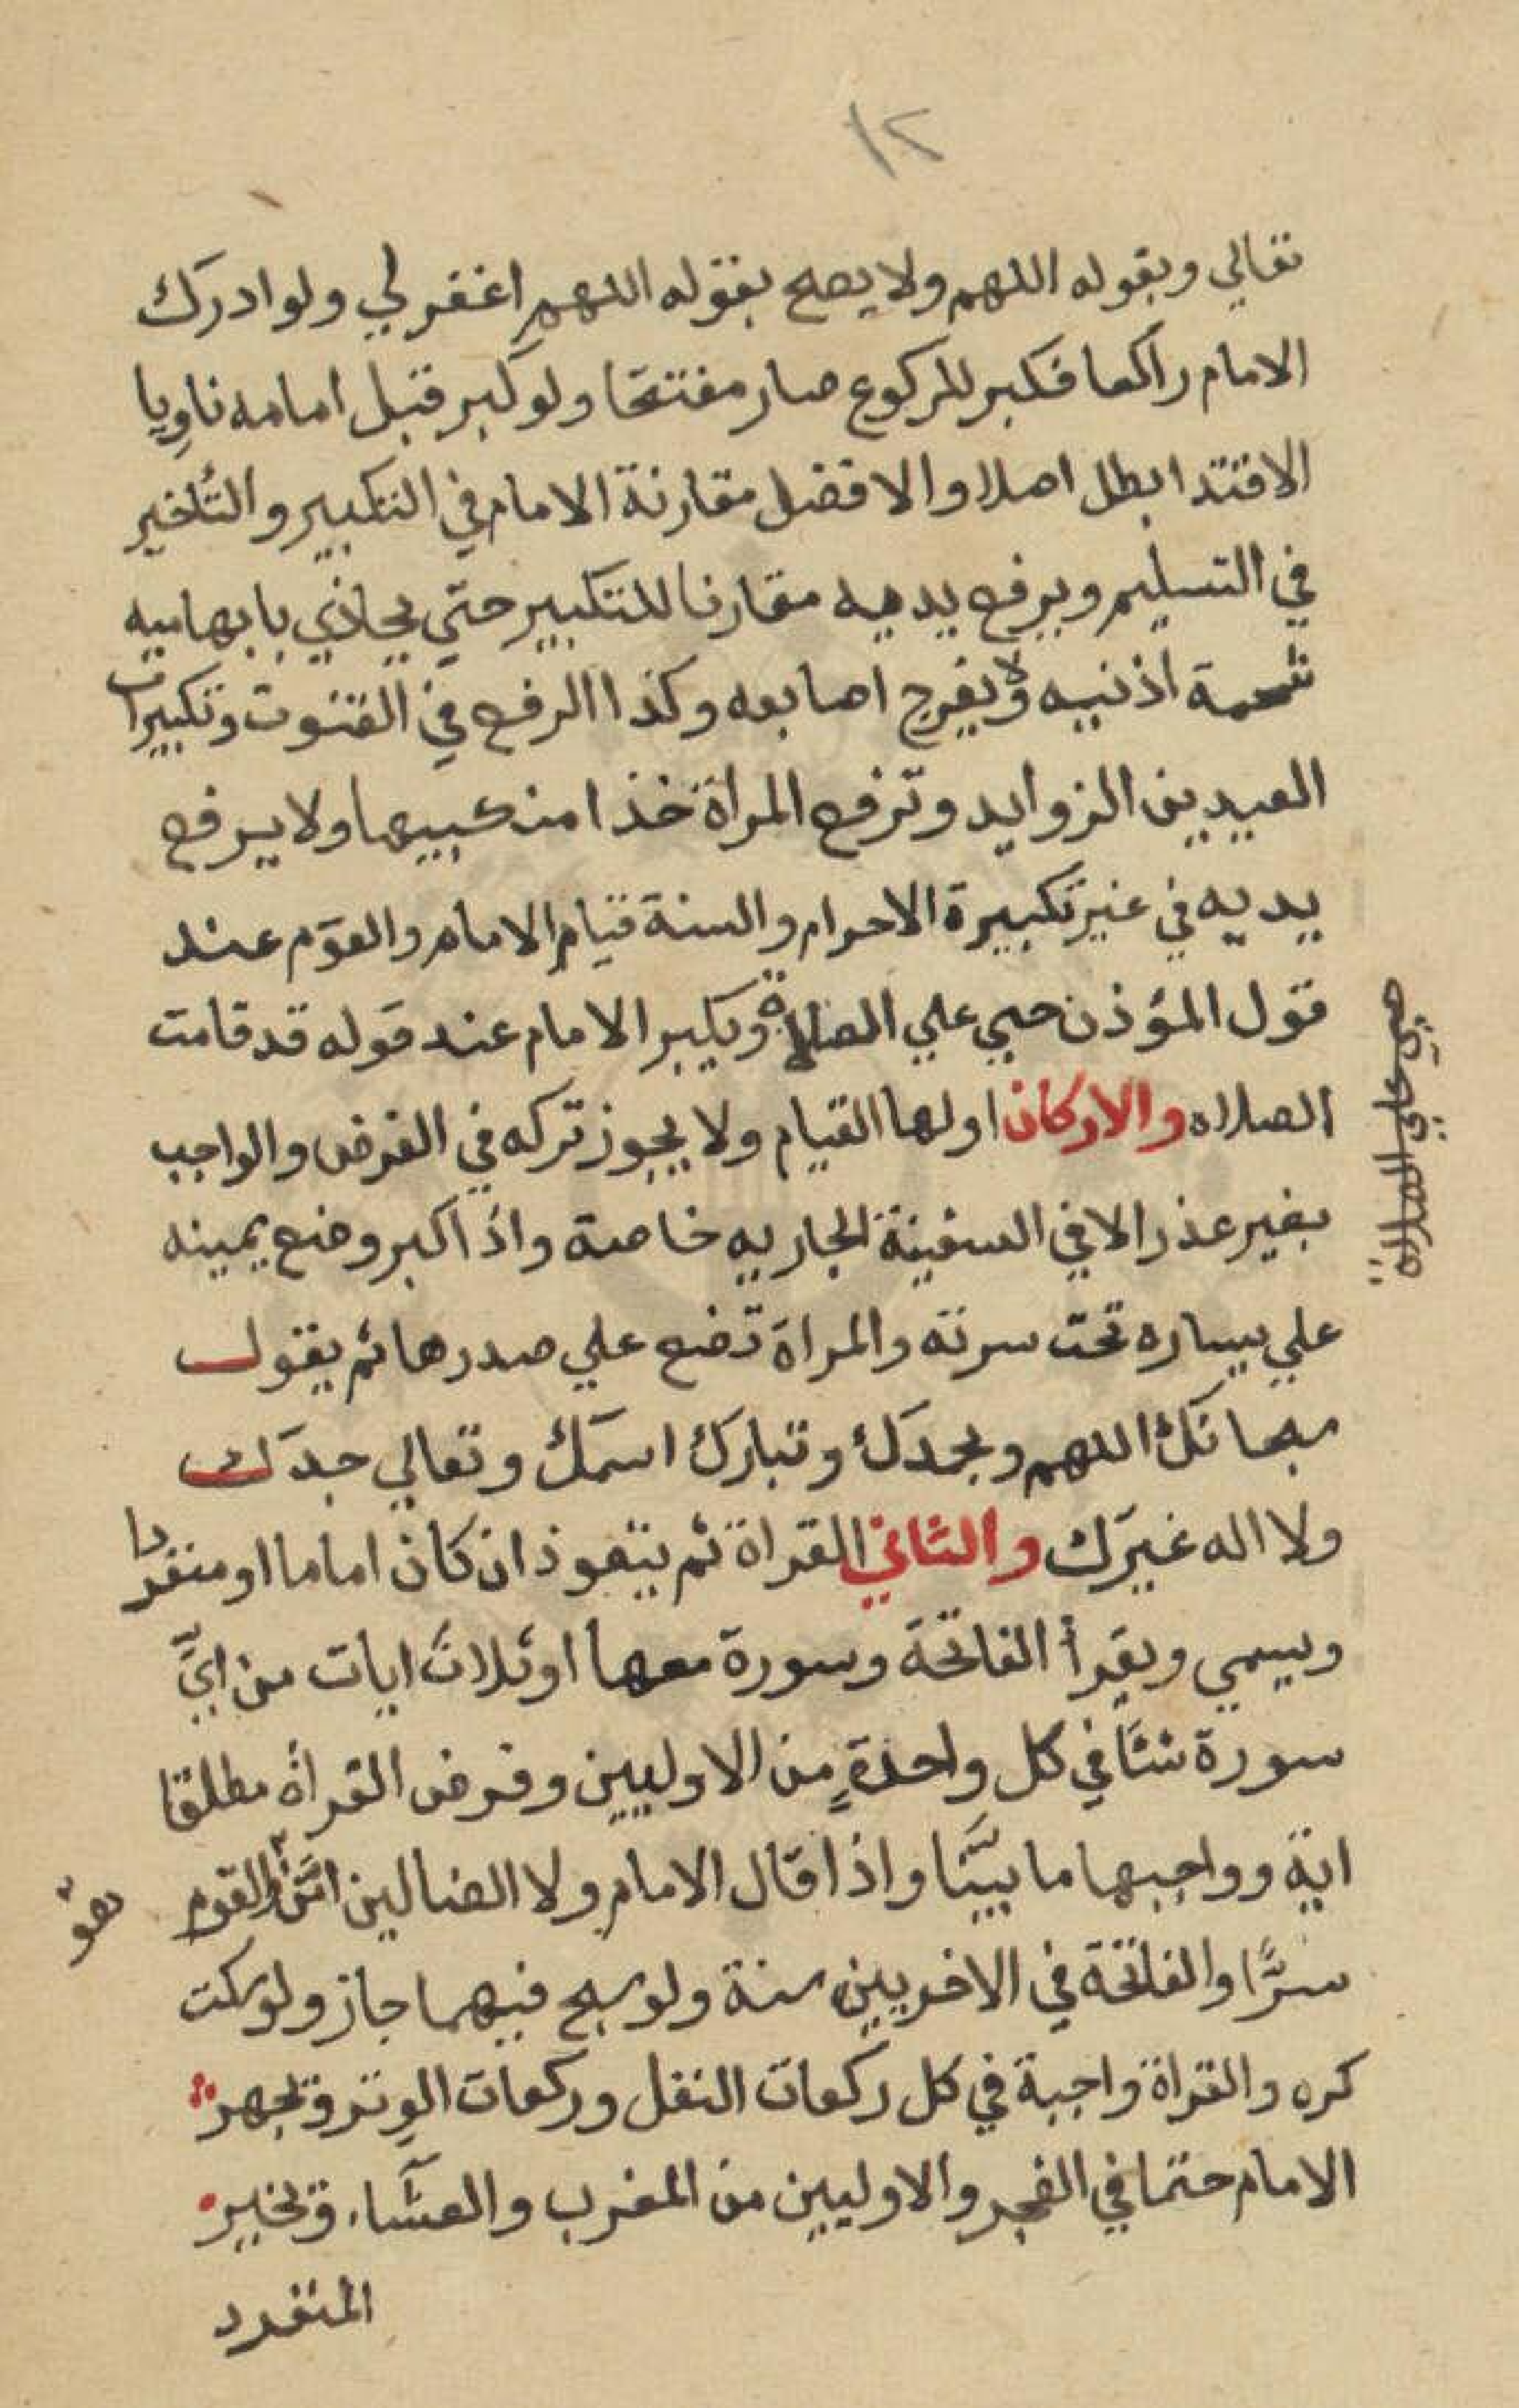 ١٢
تعالي وبقوله اللهم ولا يصح بقوله اللهم اغفر لي ولو ادرك
الامام راكعا فكبر للركوع صار مفتتحا ولو كبر قبل امامه ناويا
الاقتدا بطل اصلا والافضل مقارنة الامام في التكبير والتأخير
في التسليم ويرفع يديه مقارنا للتكبير حتي يحاذي بابهاميه
شحمة اذنيه ولا يفرج اصابعه وكذا الرفع في القنوت وتكبيرات
العيدين الزوايد وترفع المراة حذا منكبيها ولا يرفع
يديه في غير تكبيرة الاحرام والسنة قيام الامام والقوم عند
قول المؤذن حي علي الصلاة ويكبر الامام عند قوله قد قامت
الصلاه والاركان اولها القيام ولا يجوز تركه في الفرض والواجب
بغير عذر الا في السفينة الجاريه خاصة واذا كبر وضع يمينه
علي يساره تحت سرته والمراة تضع علي صدرها ثم يقول
سبحانك اللهم وبحمدك وتبارك اسمك وتعالي جدك
ولا اله غيرك والثاني القراة ثم يتعوذ ان كان اماما او منفردا
ويسمي ويقرأ الفاتحة وسورة معها او ثلاث ايات من ايّ
سورة شآ في كل واحدةٍ من الاوليين وفرض القراة مطلقا
اية وواجبها ما بيّنا واذا قال الامام ولا الضالين امّن والقوم
سرًّا والفاتحة في الاخريين سنة ولو سبح فيهما جاز ولو سكت
كره والقراة واجبة في كل ركعات النفل وركعات الوتر ويجهر
الامام حتما في الفجر والاوليين من المغرب والعشآء ويخير
المنفرد
حي علي الصلاة
هو